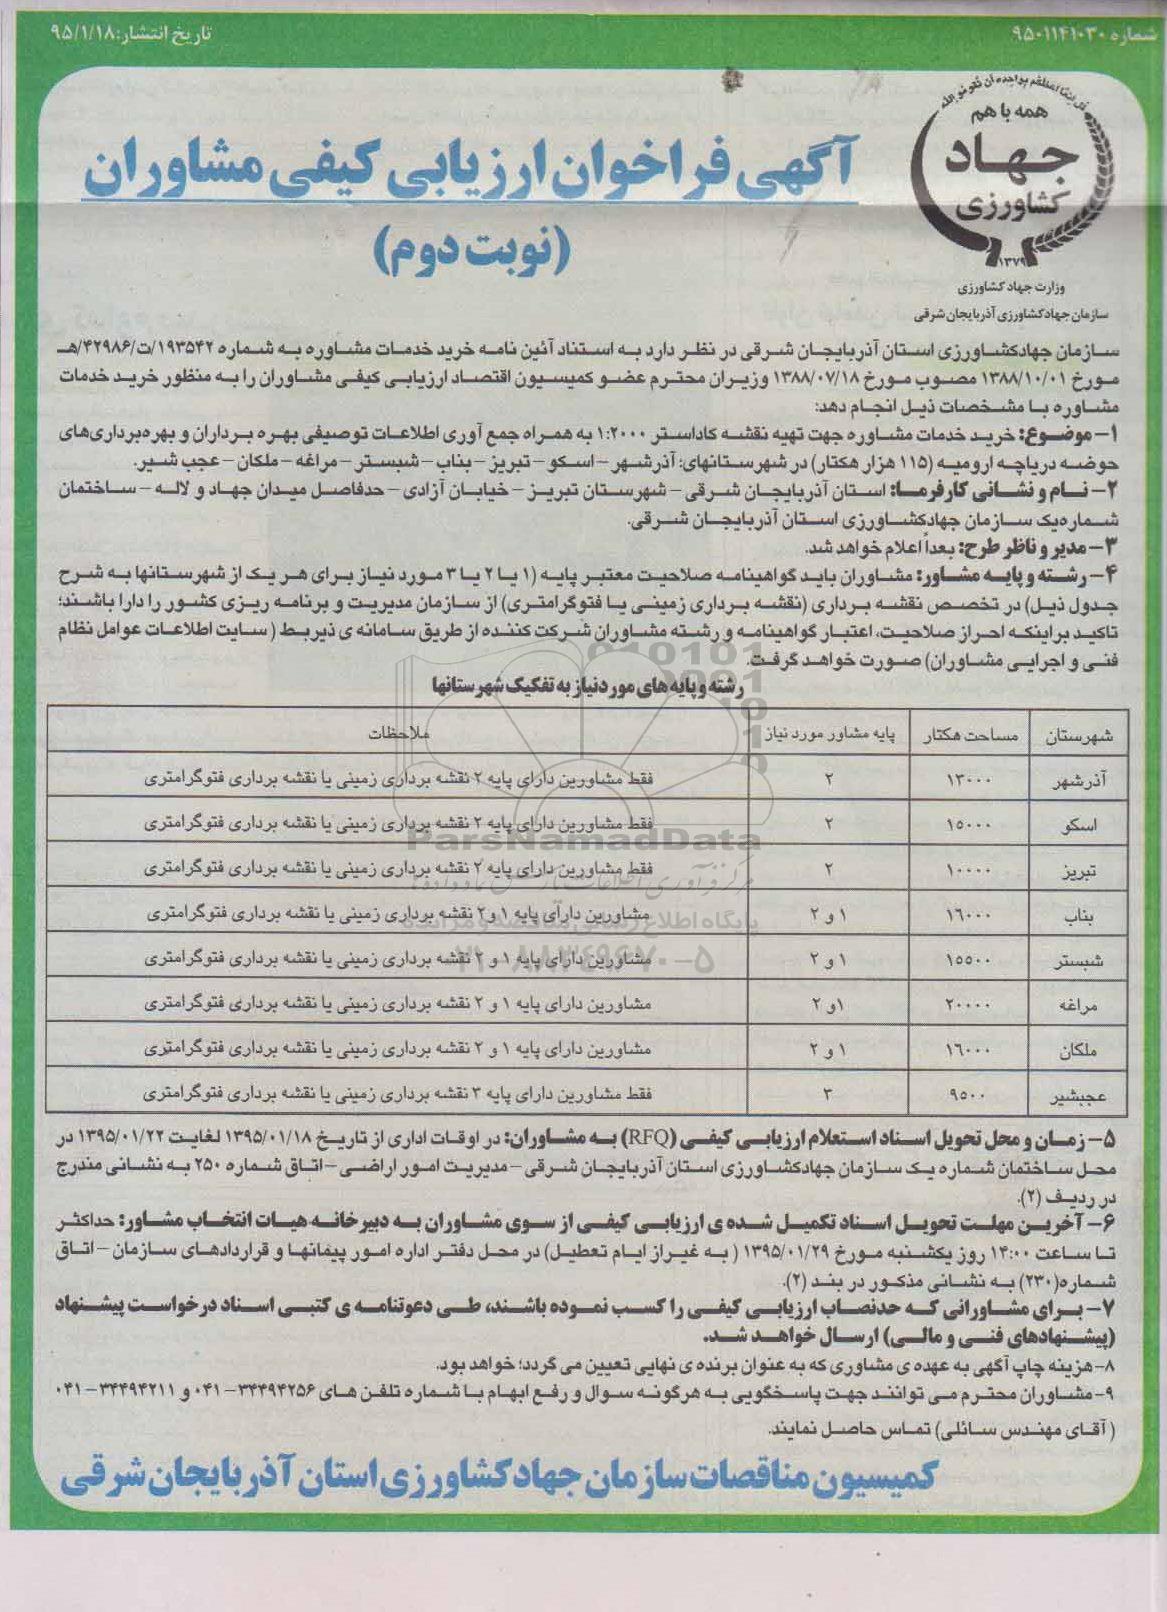 شماره ۹۵۰۱۱۴۱۰۳۰
تاریخ انتشار: ۹۵/۱/۱۸
همه با هم
جهاد
کشاورزی
۱۳۷۹
وزارت جهاد کشاورزی
سازمان جهاد کشاورزی آذربایجان شرقی
آگهی فراخوان ارزیابی کیفی مشاوران
(نوبت دوم)
سازمان جهادکشاورزی استان آذربایجان شرقی در نظر دارد به استناد آئین نامه خرید خدمات مشاوره به شماره ۱۹۳۵۴۲/ت/۴۲۹۸۶هـ
مورخ ۱۳۸۸/۱۰/۰۱ مصوب مورخ ۱۳۸۸/۰۷/۱۸ وزیران محترم عضو کمیسیون اقتصاد ارزیابی کیفی مشاوران را به منظور خرید خدمات
مشاوره با مشخصات ذیل انجام دهد:
۱- موضوع: خرید خدمات مشاوره جهت تهیه نقشه کاداستر ۱:۲۰۰۰ به همراه جمع آوری اطلاعات توصیفی بهره برداران و بهره‌برداری‌های
حوضه دریاچه ارومیه (۱۱۵ هزار هکتار) در شهرستانهای: آذرشهر - اسکو - تبریز - بناب - شبستر - مراغه - ملکان - عجب شیر.
۲- نام و نشانی کارفرما: استان آذربایجان شرقی - شهرستان تبریز - خیابان آزادی - حدفاصل میدان جهاد و لاله - ساختمان
شماره‌یک سازمان جهادکشاورزی استان آذربایجان شرقی.
۳- مدیر و ناظر طرح: بعداً اعلام خواهد شد.
۴- رشته و پایه مشاور: مشاوران باید گواهینامه صلاحیت معتبر پایه (۱ یا ۲ یا ۳ مورد نیاز برای هر یک از شهرستانها به شرح
جدول ذیل) در تخصص نقشه برداری (نقشه برداری زمینی یا فتوگرامتری) از سازمان مدیریت و برنامه ریزی کشور را دارا باشند؛
تاکید براینکه احراز صلاحیت، اعتبار گواهینامه و رشته مشاوران شرکت کننده از طریق سامانه ی ذیربط (سایت اطلاعات عوامل نظام
فنی و اجرایی مشاوران) صورت خواهد گرفت.
رشته و پایه های مورد نیاز به تفکیک شهرستانها
شهرستان | مساحت هکتار | پایه مشاور مورد نیاز | ملاحظات
آذرشهر | ۱۳۰۰۰ | ۲ | فقط مشاورین دارای پایه ۲ نقشه برداری زمینی یا نقشه برداری فتوگرامتری
اسکو | ۱۵۰۰۰ | ۲ | فقط مشاورین دارای پایه ۲ نقشه برداری زمینی یا نقشه برداری فتوگرامتری
تبریز | ۱۰۰۰۰ | ۲ | فقط مشاورین دارای پایه ۲ نقشه برداری زمینی یا نقشه برداری فتوگرامتری
بناب | ۱۶۰۰۰ | ۱ و ۲ | مشاورین دارای پایه ۱ و ۲ نقشه برداری زمینی یا نقشه برداری فتوگرامتری
شبستر | ۱۵۵۰۰ | ۱ و ۲ | مشاورین دارای پایه ۱ و ۲ نقشه برداری زمینی یا نقشه برداری فتوگرامتری
مراغه | ۲۰۰۰۰ | ۱و ۲ | مشاورین دارای پایه ۱ و ۲ نقشه برداری زمینی یا نقشه برداری فتوگرامتری
ملکان | ۱۶۰۰۰ | ۱ و ۲ | مشاورین دارای پایه ۱ و ۲ نقشه برداری زمینی یا نقشه برداری فتوگرامتری
عجبشیر | ۹۵۰۰ | ۳ | فقط مشاورین دارای پایه ۳ نقشه برداری زمینی یا نقشه برداری فتوگرامتری
ParsNamadData
مرکز فرآوری اطلاعات پارس نماد داده ها
پایگاه اطلاع رسانی مناقصه و مزایده
۰۲۱-۸۸۳۴۹۶۷۰-۵
۵- زمان و محل تحویل اسناد استعلام ارزیابی کیفی (RFQ) به مشاوران: در اوقات اداری از تاریخ ۱۳۹۵/۰۱/۱۸ لغایت ۱۳۹۵/۰۱/۲۲ در
محل ساختمان شماره یک سازمان جهادکشاورزی استان آذربایجان شرقی - مدیریت امور اراضی - اتاق شماره ۲۵۰ به نشانی مندرج
در ردیف (۲).
۶- آخرین مهلت تحویل اسناد تکمیل شده ی ارزیابی کیفی از سوی مشاوران به دبیرخانه هیات انتخاب مشاور: حداکثر
تا ساعت ۱۴:۰۰ روز یکشنبه مورخ ۱۳۹۵/۰۱/۲۹ (به غیراز ایام تعطیل) در محل دفتر اداره امور پیمانها و قراردادهای سازمان - اتاق
شماره(۲۳۰) به نشانی مذکور در بند (۲).
۷- برای مشاورانی که حدنصاب ارزیابی کیفی را کسب نموده باشند، طی دعوتنامه ی کتبی اسناد درخواست پیشنهاد
(پیشنهادهای فنی و مالی) ارسال خواهد شد.
۸- هزینه چاپ آگهی به عهده ی مشاوری که به عنوان برنده ی نهایی تعیین می گردد؛ خواهد بود.
۹- مشاوران محترم می توانند جهت پاسخگویی به هرگونه سوال و رفع ابهام با شماره تلفن های ۳۴۴۹۴۲۵۶-۰۴۱ و ۳۴۴۹۴۲۱۱-۰۴۱
(آقای مهندس سائلی) تماس حاصل نمایند.
کمیسیون مناقصات سازمان جهاد کشاورزی استان آذربایجان شرقی